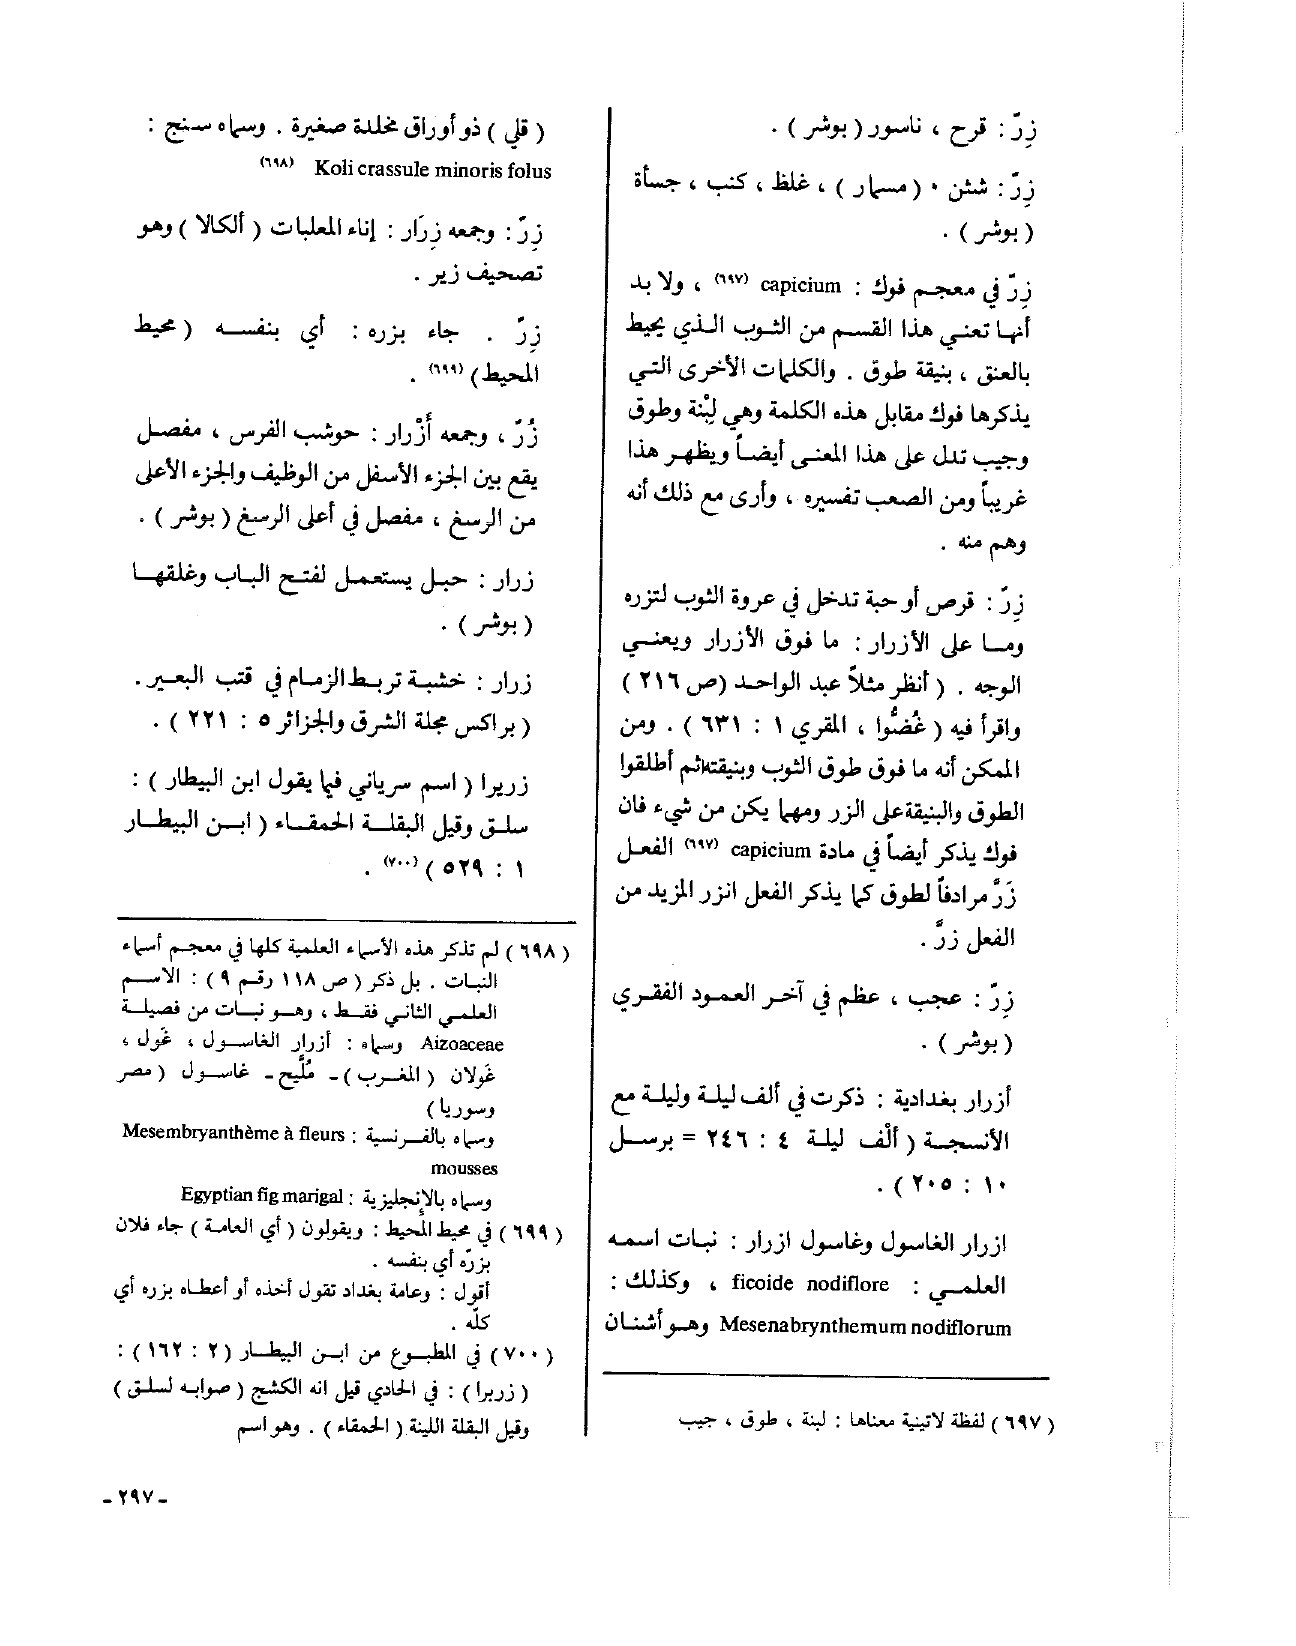 زِرّ : قرح ، ناسور ( بوشر ) .
زِرّ : شثن ٠ ( مسمار ) ، غلظ ، كنب ، جسأة
( بوشر ) .
زِرّ في معجم فوك : capicium (٦٩٧) ، ولا بد
أنها تعني هذا القسم من الثوب الذي يحيط
بالعنق ، بنيقة طوق . والكلمات الأخرى التي
يذكرها فوك مقابل هذه الكلمة وهي لِبْنة وطوق
وجيب تدل على هذا المعنى أيضاً ويظهر هذا
غريباً ومن الصعب تفسيره ، وأرى مع ذلك أنه
وهم منه .
زِرّ : قرص أو حبة تدخل في عروة الثوب لتزره
وما على الأزرار : ما فوق الأزرار ويعني
الوجه . ( أنظر مثلاً عبد الواحد (ص ٢١٦ )
واقرأ فيه ( غُضُّوا ، المقري ١ : ٦٣١ ) . ومن
الممكن أنه ما فوق طوق الثوب وبنيقته ثم أطلقوا
الطوق والبنيقة على الزر ومهما يكن من شيء فان
فوك يذكر أيضاً في مادة capicium (٦٩٧) الفعل
زَرَّ مرادفاً لطوق كما يذكر الفعل انزر المزيد من
الفعل زرَّ .
زِرّ : عجب ، عظم في آخر العمود الفقري
( بوشر ) .
أزرار بغدادية : ذكرت في ألف ليلة وليلة مع
الأنسجة ( ألف ليلة ٤ : ٢٤٦ = برسل
١٠ : ٢٠٥ ) .
ازرار الغاسول وغاسول ازرار : نبات اسمه
العلمي : ficoide nodiflore ، وكذلك :
Mesenabrynthemum nodiflorum وهو أشنان
( ٦٩٧ ) لفظة لاتينية معناها : لبنة ، طوق ، جيب
( قلي ) ذو أوراق مخلدة صغيرة . وسماه سنج :
Koli crassule minoris folus (٦٩٨)
زِرّ : وجمعه زِرَار : إناء المعلبات ( ألكالا ) وهو
تصحيف زير .
زِرّ . جاء بزره : أي بنفسه ( محيط
المحيط ) (٦٩٩) .
زُرّ ، وجمعه أَزْرار : حوشب الفرس ، مفصل
يقع بين الجزء الأسفل من الوظيف والجزء الأعلى
من الرسغ ، مفصل في أعلى الرسغ ( بوشر ) .
زرار : حبل يستعمل لفتح الباب وغلقها
( بوشر ) .
زرار : خشبة تربط الزمام في قتب البعير .
( براكس مجلة الشرق والجزائر ٥ : ٢٢١ ) .
زريرا ( اسم سرياني فيما يقول ابن البيطار ) :
سلق وقيل البقلة الحمقاء ( ابن البيطار
١ : ٥٢٩ ) (٧٠٠) .
( ٦٩٨ ) لم تذكر هذه الأسماء العلمية كلها في معجم أسماء
النبات . بل ذكر ( ص ١١٨ رقم ٩ ) : الاسم
العلمي الثاني فقط ، وهو نبات من فصيلة
Aizoaceae وسماه : أزرار الغاسول ، غَول ،
غَولان ( المغرب ) - مُلَّيح - غاسول ( مصر
وسوريا )
وسماه بالفرنسية : Mesembryanthème à fleurs
mousses
وسماه بالإنجليزية : Egyptian fig marigal
( ٦٩٩ ) في محيط المحيط : ويقولون ( أي العامة ) جاء فلان
بزرّه أي بنفسه .
أقول : وعامة بغداد تقول أخذه أو أعطاه بزره أي
كلّه .
( ٧٠٠ ) في المطبوع من ابن البيطار ( ٢ : ١٦٢ ) :
( زريرا ) : في الحادي قيل انه الكشج ( صوابه لسلق )
وقيل البقلة اللينة ( الحمقاء ) . وهو اسم
- ٢٩٧ -